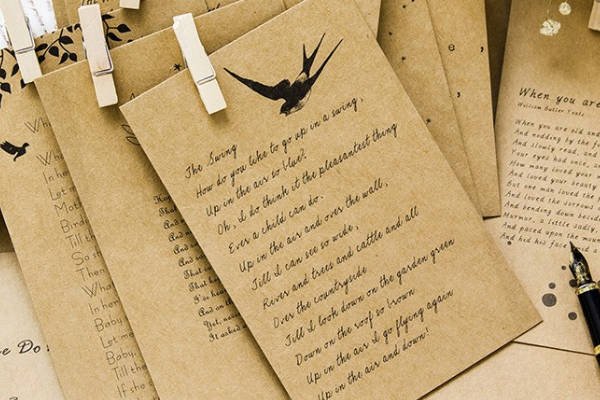 In her
Let
Birdi
Till
So
Then
In her
Baby,
Let me
Baby,
Till the
If she
And
And
I've
And on
Yet, never
It asked
e Do
The Swing
How do you like to go up in a swing,
Up in the air so blue?
Oh, I do think it the pleasantest thing
Ever a child can do.
Up in the air and over the wall,
Till I can see so wide,
River and trees and cattle and all
Over the countryside
Till I look down on the garden green
Down on the roof so brown
Up in the air I go flying again
Up in the air and down!
When you are
William Butler Yeats
When you are old and
And nodding by the
And slowly read, and
Your eyes had once,
How many loved your
And loved your beauty
But one man loved the
And loved the sorrow
And bending down beside
Murmur, a little sadly,
And paced upon the
And hid his face